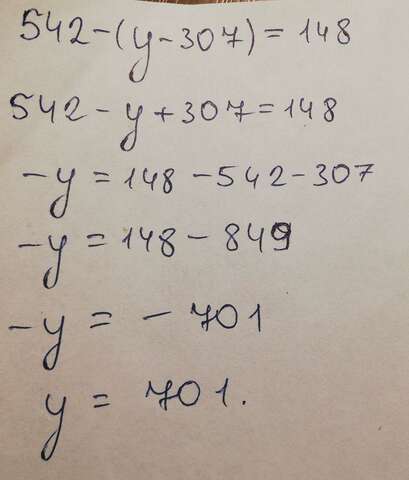 542-(y-307)=148
542-y+307=148
-y=148-542-307
-y=148-849
-y=-701
y=701.